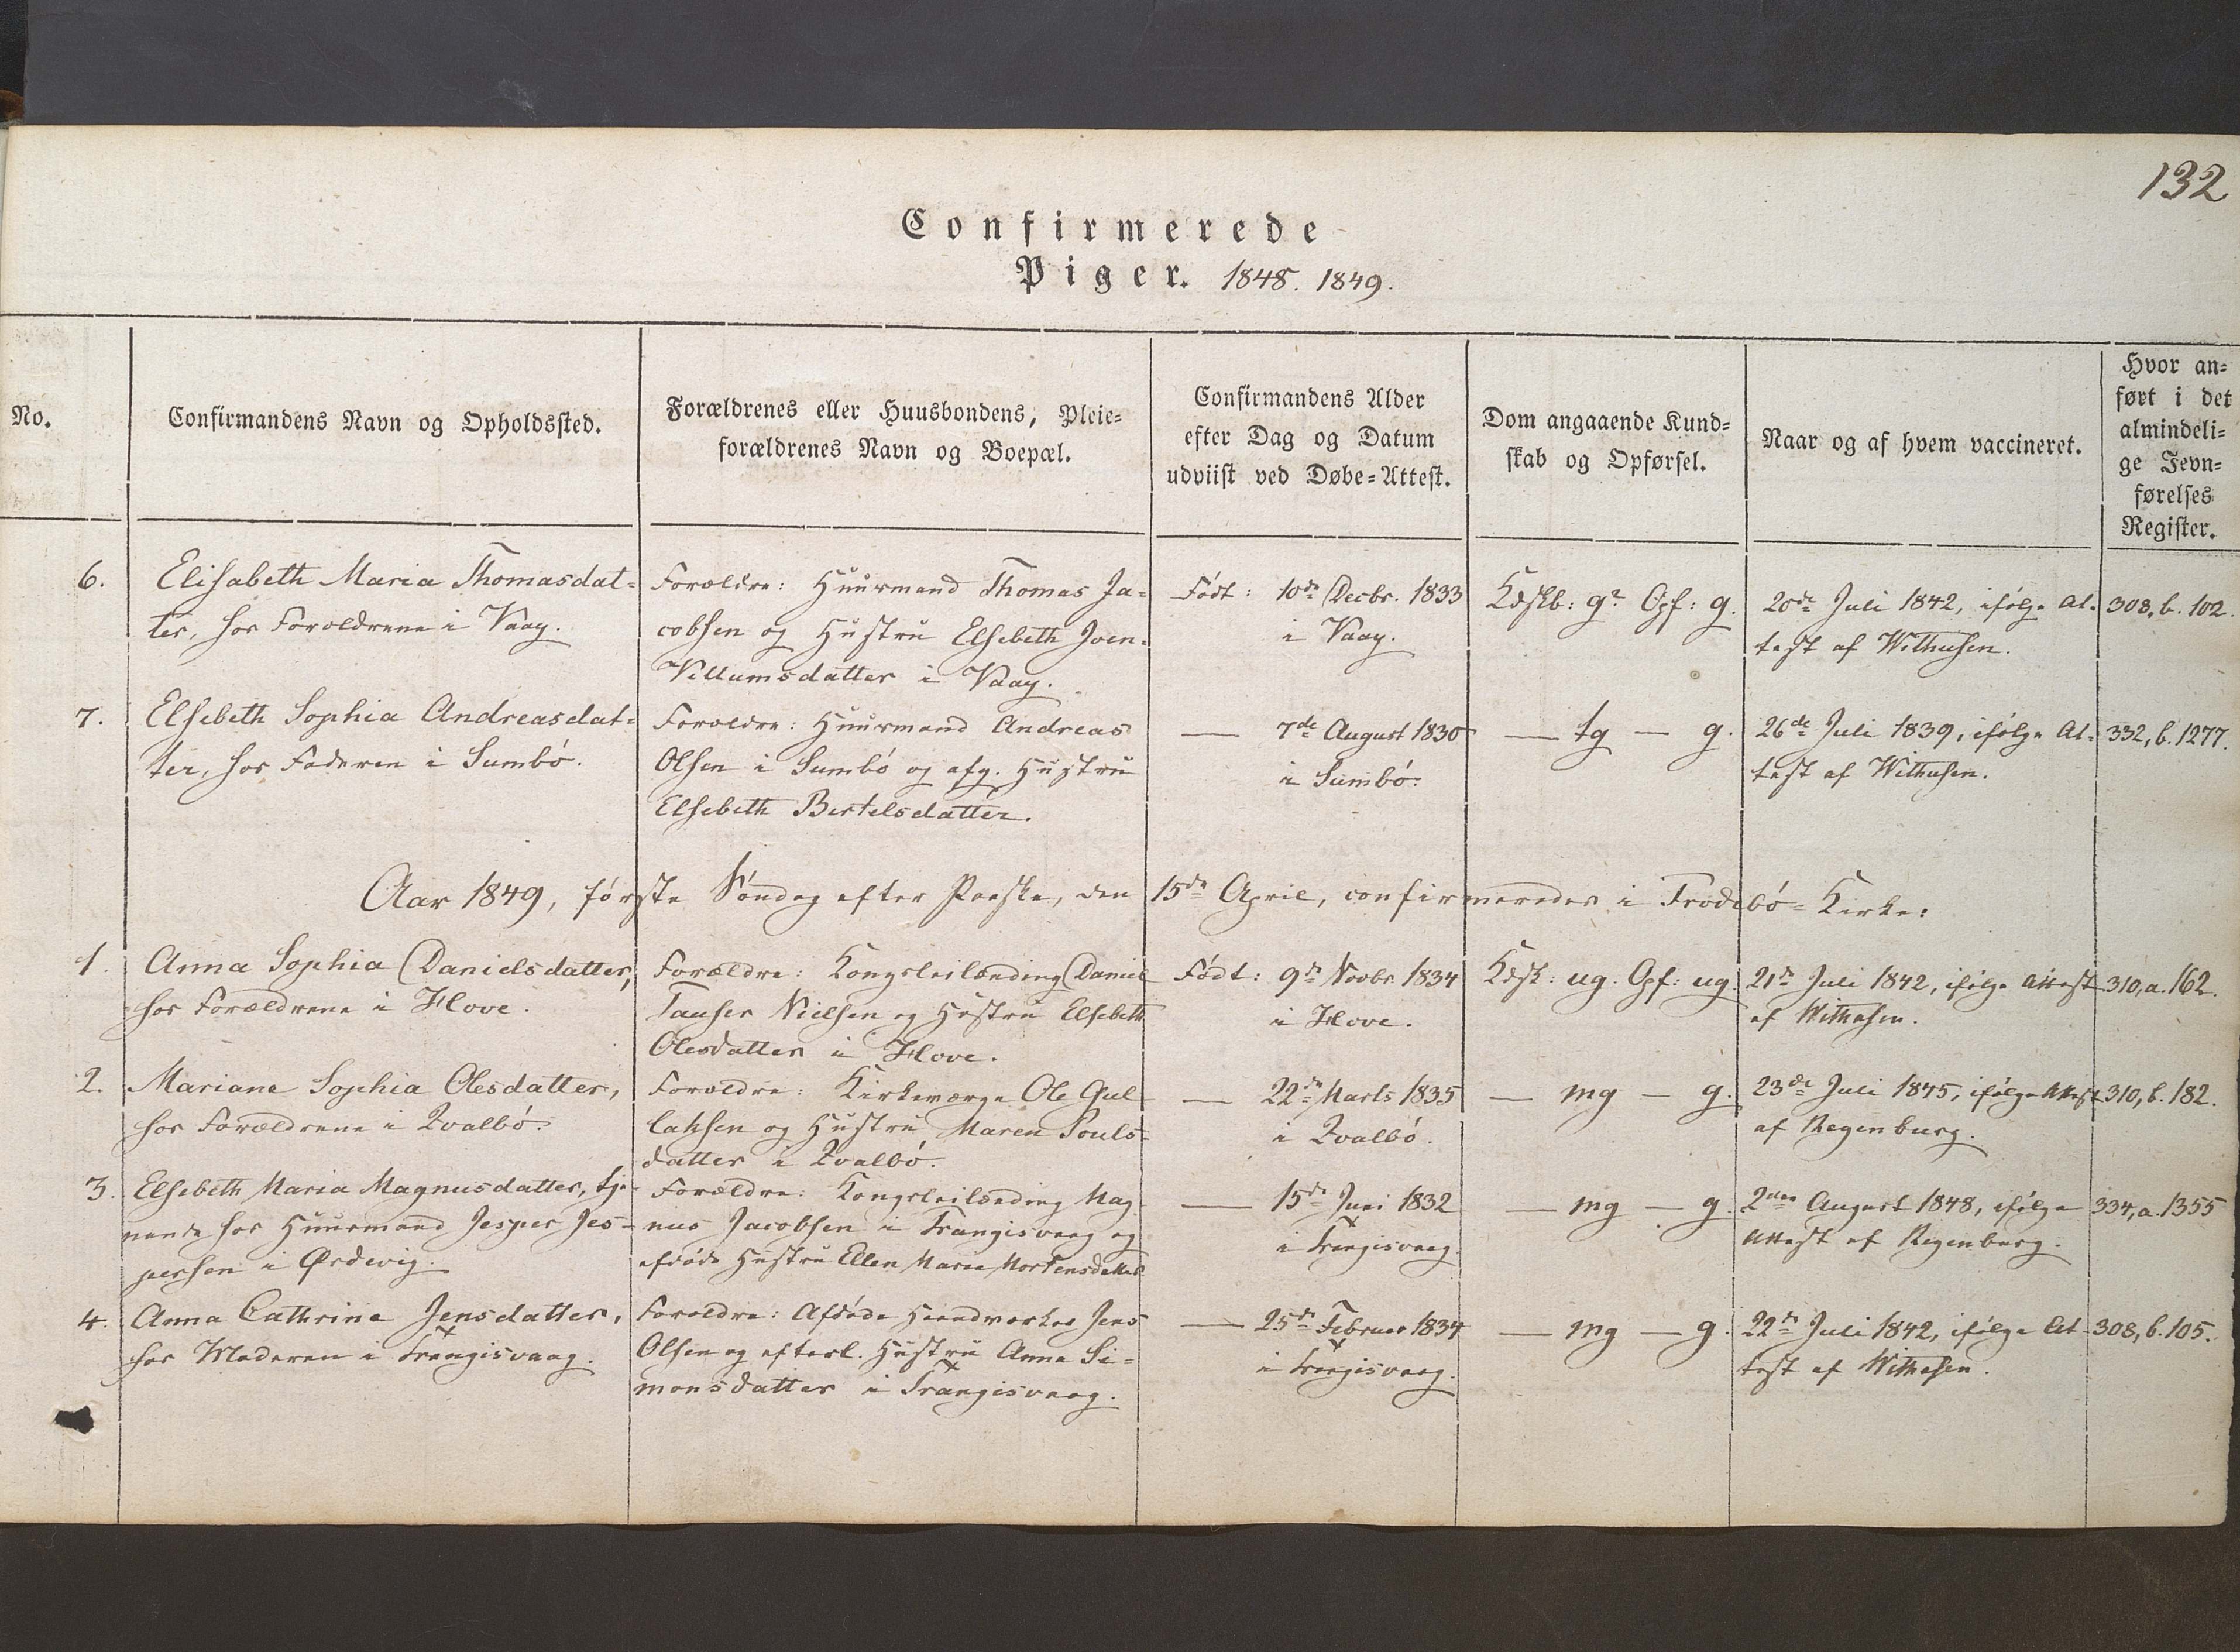 132
Confirmerede
Piger. 1848. 1849.
No.
Confirmandens Navn og Opholdssted.
Forældrenes eller Huusbondens, Pleie=
forældrenes Navn og Boepæl.
Confirmandens Alder
efter Dag og Datum
udviist ved Døbe=Attest.
Dom angaaende Kund=
skab og Opførsel.
Naar og af hvem vaccineret.
Hvor an=
ført i det
almindeli=
ge Jevn=
førelses
Register.
6.
Elisabeth Maria Thomasdat=
ter, hos Forældrene i Vaag.
Forældre: Huusmand Thomas Ja=
cobsen og Hustru Elsebeth Joen=
Villumsdatter i Vaag.
Født: 10de Decbr. 1833
i Vaag.
Kdskb: g? Opf: g.
20de Juli 1842, ifølge At=
test af Withusen.
308, b. 102.
7.
Elsebeth Sophia Andreasdat=
ter, hos Faderen i Sumbø.
Forældre: Huusmand Andreas
Olsen i Sumbø og afg. Hustru
Elsebeth Bertelsdatter.
— 7de August 1830
i Sumbø.
— tg — g.
26de Juli 1839, ifølge At=
test af Withusen.
332, b. 1277.
Aar 1849, første Søndag efter Paaske, den 15de April, confirmeredes i Frodebø=Kirke:
1.
Anna Sophia Danielsdatter,
hos Forældrene i Hove.
Forældre: Kongsleilænding Daniel
Tausen Nielsen og Hustru Elsebeth
Olesdatter i Hove.
Født: 9de Novbr. 1834
i Hove.
Kdsk: ug. Opf: ug.
21de Juli 1842, ifølge Attest
af Withusen.
310, a. 162.
2.
Mariane Sophia Olesdatter,
hos Forældrene i Qvalbø.
Forældre: Kirkeværge Ole Gul
laksen og Hustru Maren Pouls=
datter i Qvalbø.
— 22de Marts 1835
i Qvalbø.
— mg — g.
23de Juli 1845, ifølge Attest
af Regenburg.
310, b. 182.
3.
Elsebeth Maria Magnusdatter, tje=
nende hos Huusmand Jesper Jes=
persen i Ørdevig.
Forældre: Kongsleilænding Mag
nus Jacobsen i Trangisvaag og
afdøde Hustru Ellen Maria Mortensdatter
— 15de Juni 1832
i Trangisvaag.
— mg — g.
2den August 1848, ifølge
Attest af Regenburg.
334, a. 1355
4.
Anna Cathrine Jensdatter,
hos Moderen i Trangisvaag.
Forældre: Afdøde Haandværker Jens
Olsen og efterl. Hustru Anna Si=
monsdatter i Trangisvaag.
— 25de Februar 1834
i Trangisvaag.
— mg — g.
22de Juli 1842, ifølge At=
test af Withusen.
308, b. 105.